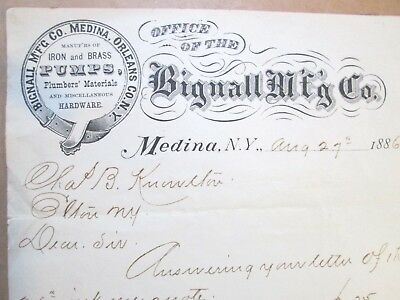 BIGNALL M'F'G CO. MEDINA, ORLEANS CO. N.Y.
MANUF'RS OF
IRON and BRASS
PUMPS,
Plumbers' Materials
AND MISCELLANEOUS
HARDWARE.
OFFICE
OF THE
Bignall M'f'g Co.
Medina, N.Y., Aug 27th 1886
Chas B. Knowlton
Elton NY
Dear Sir
Answering your letter of
quote